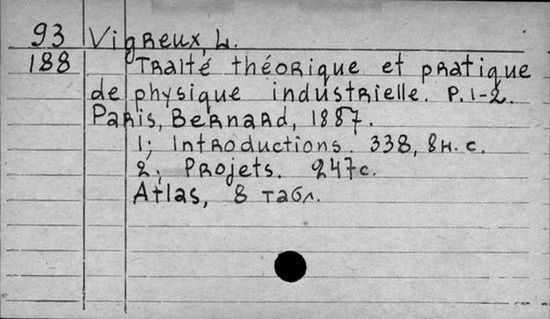 93 Vigreux, L.
188 Traité théorique et pratique
de physique industrielle. P. 1-2.
Paris, Bernard, 1887.
1; Introductions. 338, 8 н. с.
2; Projets. 247 с.
Atlas, 8 табл.